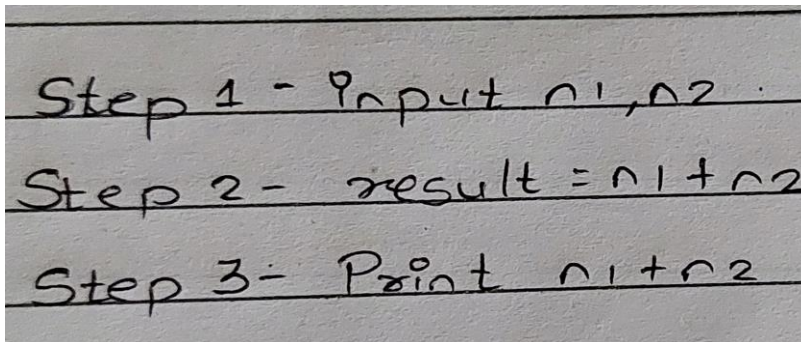 Step 1 - input n1, n2 .
Step 2 - result = n1 + n2
Step 3 - Print n1 + n2